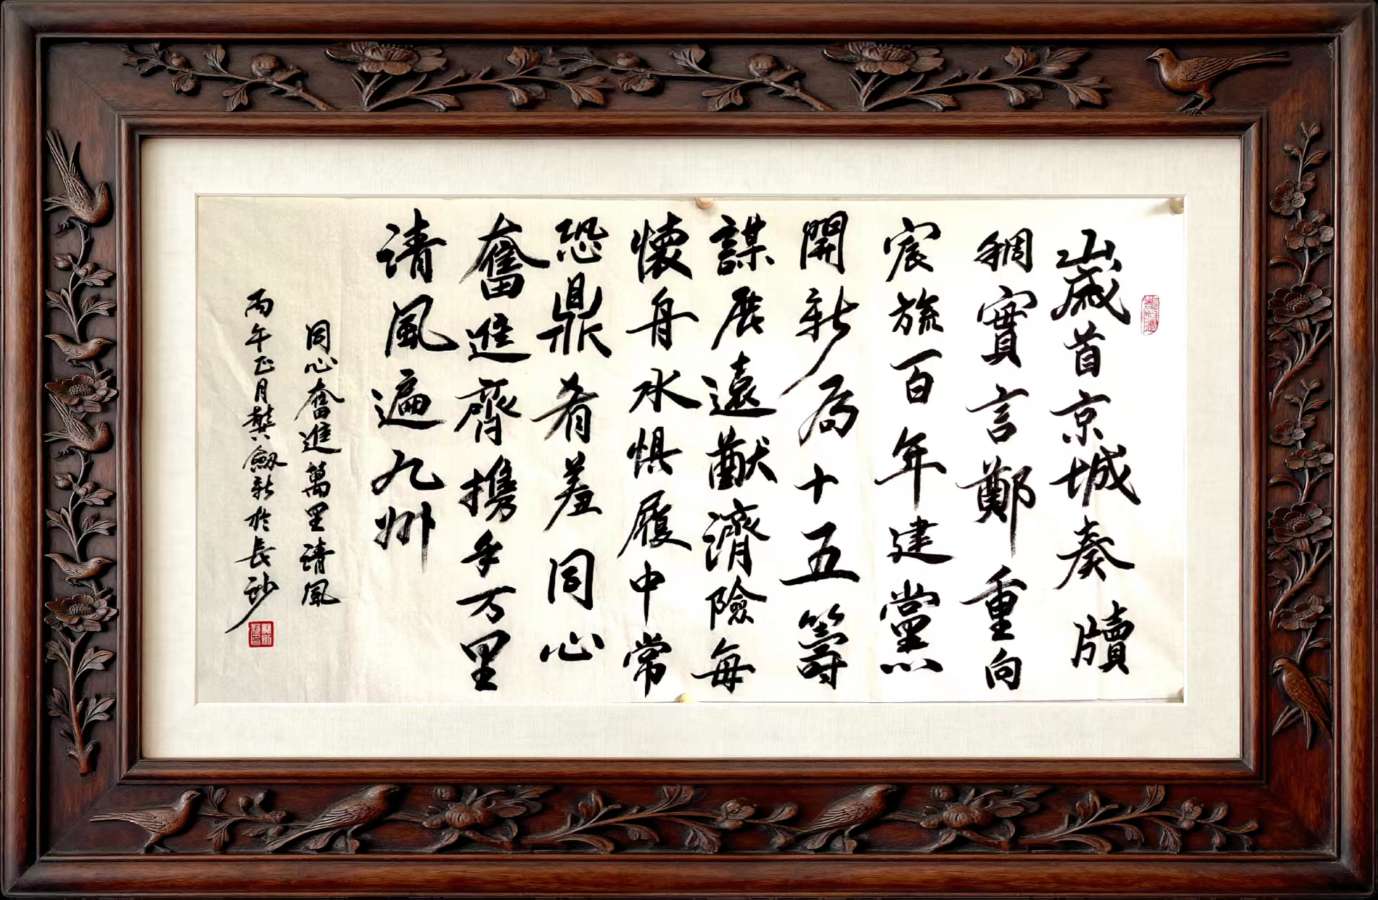 歲首京城奏牘
稠實言鄭重向
宸旒百年建黨
開新局十五籌
謀展遠猷濟險每
懷舟水惧履中常
恐鼎肴羞同心
奮進齊携手万里
清風遍九州
同心奮進萬里清風
丙午正月龔劍新於長沙